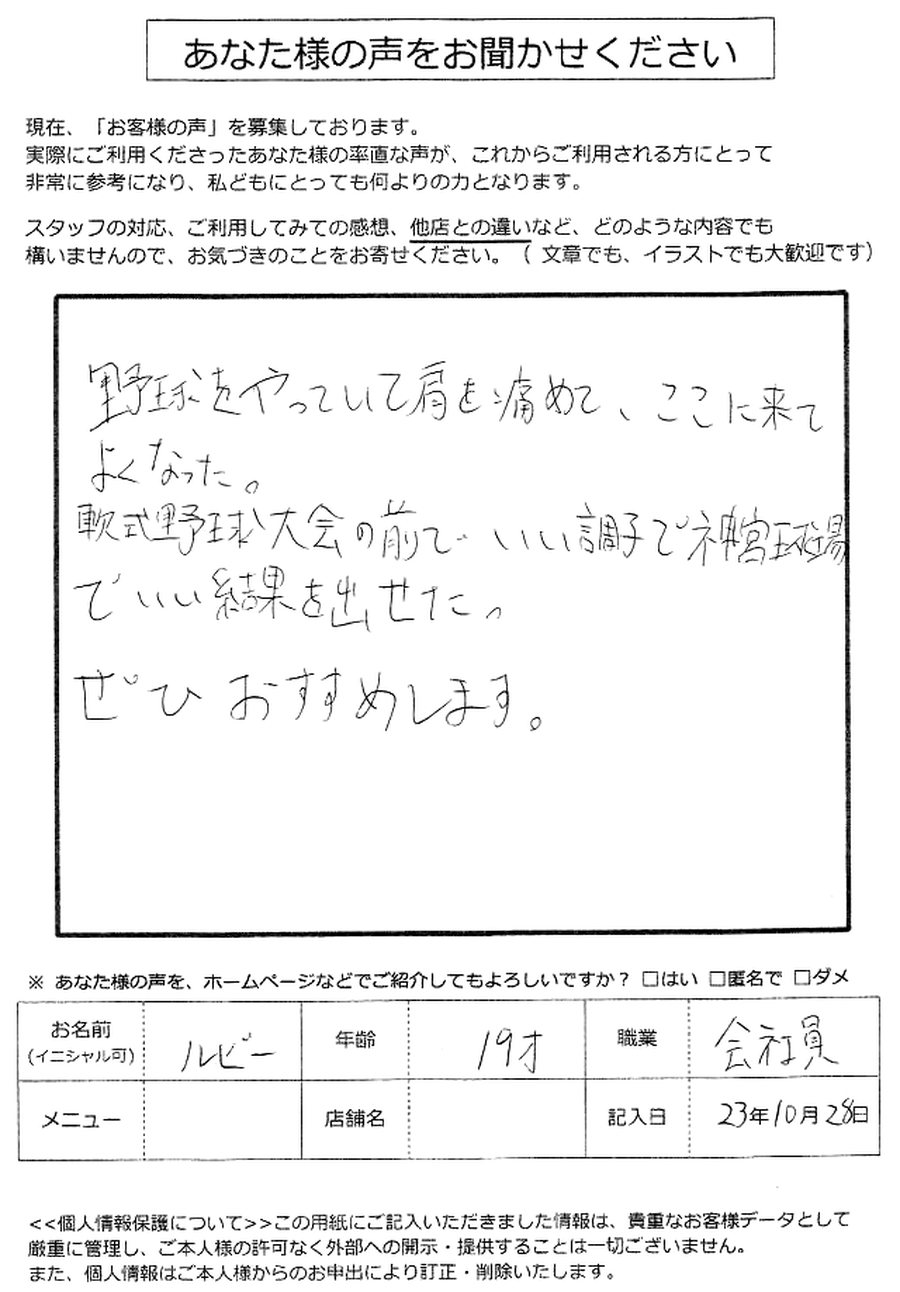 あなた様の声をお聞かせください
現在、「お客様の声」を募集しております。
実際にご利用くださったあなた様の率直な声が、これからご利用される方にとって
非常に参考になり、私どもにとっても何よりの力となります。
スタッフの対応、ご利用してみての感想、他店との違いなど、どのような内容でも
構いませんので、お気づきのことをお寄せください。（文章でも、イラストでも大歓迎です）
野球をやっていて肩を痛めて、ここに来て
よくなった。
軟式野球大会の前で いい調子で神宮球場
でいい結果を出せた。
ぜひ おすすめします。
※ あなた様の声を、ホームページなどでご紹介してもよろしいですか？ □はい □匿名で □ダメ
お名前 (イニシャル可) ルビー 年齢 19才 職業 会社員
メニュー 店舗名 記入日 23年10月28日
<<個人情報保護について>>この用紙にご記入いただきました情報は、貴重なお客様データとして
厳重に管理し、ご本人様の許可なく外部への開示・提供することは一切ございません。
また、個人情報はご本人様からのお申出により訂正・削除いたします。